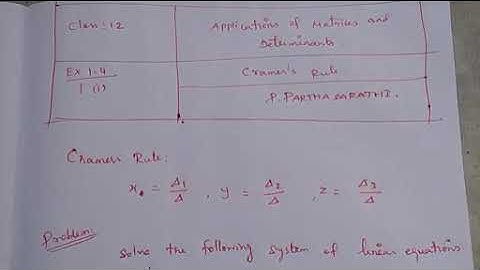 Class: 12
Applications of Matrices and
Determinants
Ex 1.4
1 (i)
Cramer's Rule
P. PARTHASARATHI.
Cramers Rule:
x = Δ1/Δ , y = Δ2/Δ , z = Δ3/Δ
Problem:
Solve the following system of linear equations